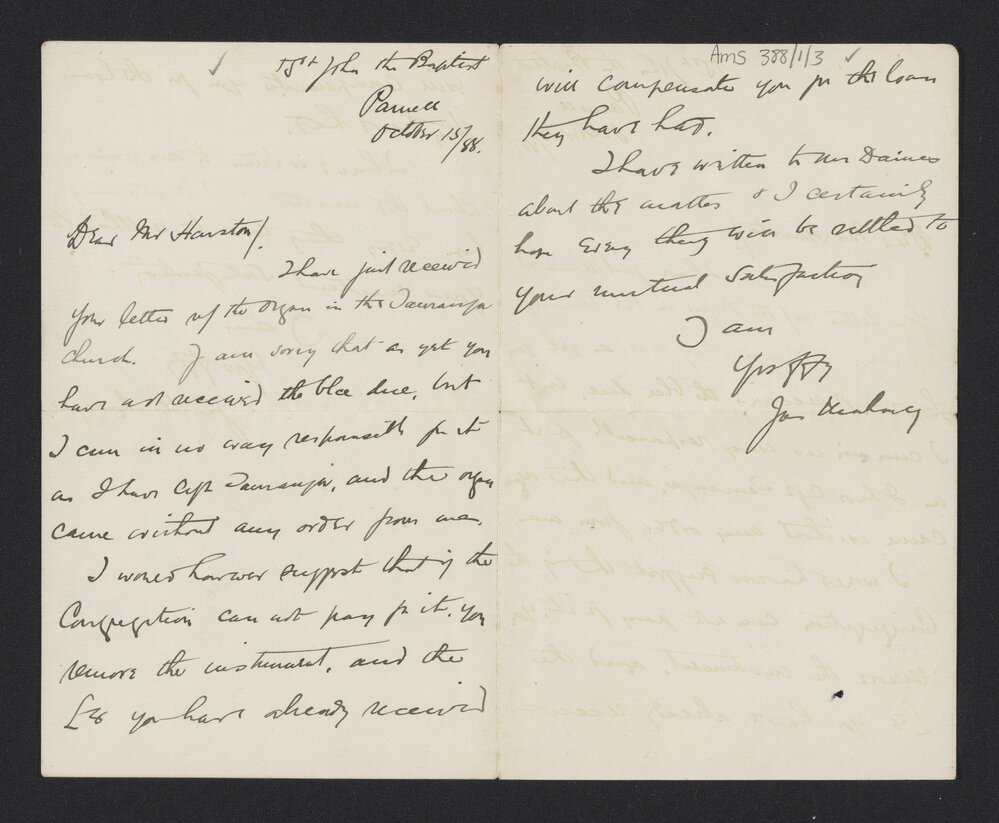 St John the Baptist
Parnell
October 15/88.
Dear Mr Hairston/.
I have just received
your letter of the organ in the Tauranga
church. I am sorry that as yet you
have not received the blce due, but
I am in no way responsible for it
as I have left Tauranga, and the organ
came without any order from me.
I would however suggest that if the
Congregation can not pay for it, you
remove the instrument, and the
you have already received
AMS 388/1/3
will compensate you for the loan
they have had.
I have written to Mr Daines
about the matter & I certainly
hope every thing will be settled to
your mutual satisfaction
I am
Yrs ffly
Jas